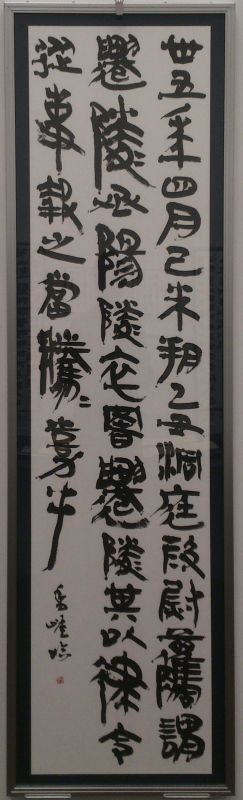 卅五年四月己未朔乙丑洞庭叚尉觿謂
遷陵丞陽陵卒署遷陵其以律令
從事報之當騰〻嘉手
臨